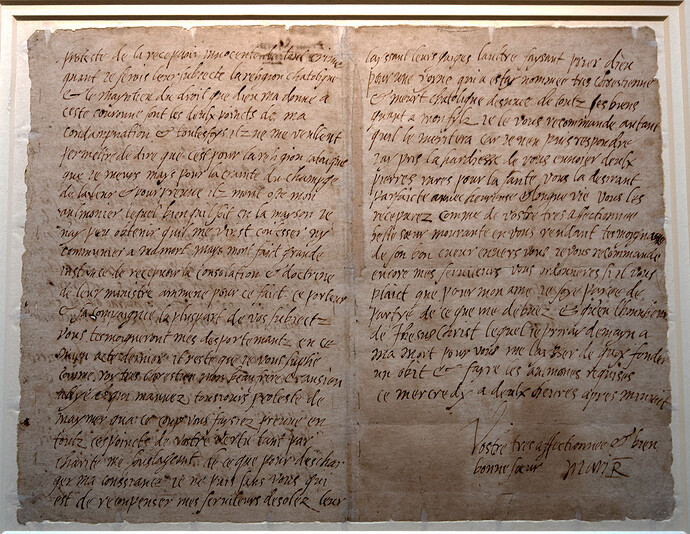 protecte de la recepvoir innocente de tout crime
quant je serois leur subjecte la religion chatolique
& le mayntien du droit que dieu ma donne a
ceste couronne sont les deulx points de ma
condampnation & toutesfoys ilz ne me veullent
permettre de dire que cest pour la religion catolique
que je meurs mays pour la crainte du champge
de la leur & pour preuve ilz mont oste mon
aulmonier lequel bien quil soit en la mayson je
nay peu obtenir quil me vinst confesser ny
communier a ma mort mays mont fait grande
instance de recepvoir la consolation & doctrine
de leur ministre ammene pour ce fait ce porteur
& sa compaignie la pluspart de vos subjectz
vous tesmoigneront mes desportemantz en ce
mien acte dernier il reste que je vous suplie
comme roy tres chrestien mon beaufrere & ansien
allye & qui mauuez tousjours proteste de
maymer qua ce coup vous faysiez preuve en
toutz ces poincts de vostre vertu tant par
charite me souslageant de ce que pour deschar
ger ma conssiance je ne puis sans vous qui
est de recompenser mes serviteurs desolez leur
laissant leurs gaiges laultre faysant prier dieu
pour une royne qui a estay nommee tres chrestienne
& meurt chatolique desnuee de toutz ses biens
quant a mon filz je le vous recommande autant
quil le meritera car je nen puis respondre
jay pris la hardiesse de vous envoier deulx
pierres rares pour la sante vous la desirant
parfaicte avec heureuse & longue vie vous les
recepvrez comme de vostre tres affectionnee
belle soeur mourante en vous rendant tesmoygnage
de son bon cueur envers vous je vous recommande
encore mes serviteurs vous ordonneres si il vous
plaict que pour mon ame je soye payee de
partye de ce que me debvez & quen lhonneur
de Jhesus Christ lequel je priray demayn a
ma mort pour vous me laisser de quoy fonder
un obit & fayre les aumones requises
ce mercredy a deulx heures apres minuit
Vostre tres affectionnee & bien
bonne soeur Mari R